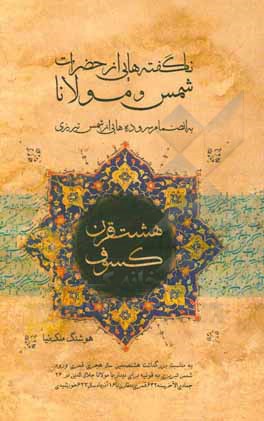 ناگفته هایی از حضرات
شمس و مولانا
به انضمام سروده هایی از شمس تبریزی
هشت قرن
کسوف
هوشنگ ملک‌نیا
به مناسبت بزرگداشت هشتصدمین سال هجری قمری ورود
شمس تبریزی به قونیه برای دیدار با مولانا جلال الدین در ۲۶
جمادی الآخر سنه ۶۴۲ قمری مطابق با